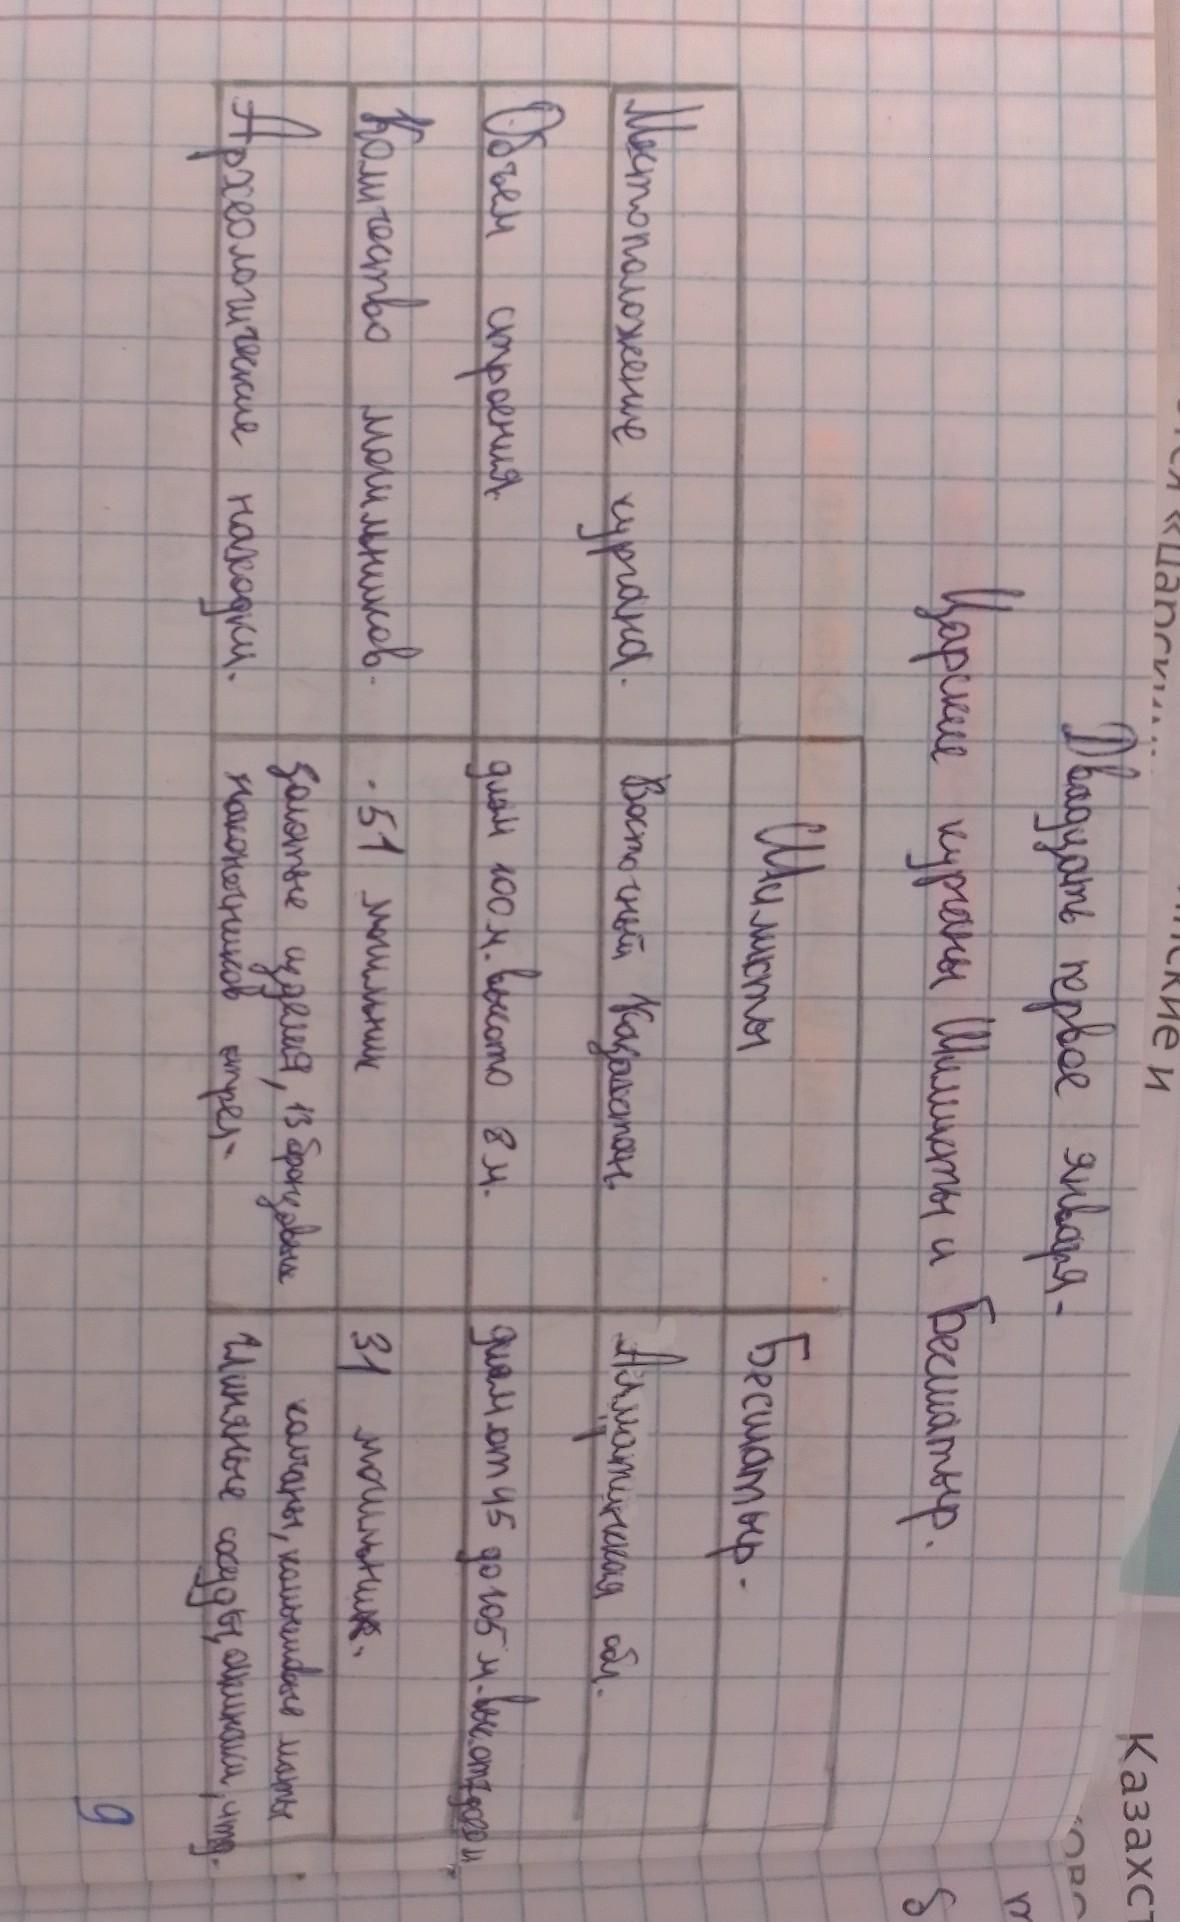 Двадцать первое января.
Царские курганы Шиликты и Бесшатыр.
Шиликты
Бесшатыр.
Местоположение кургана.
Восточный Казахстан.
Алматинская обл.
Объем строения
диам 100 м. высота 8 м.
диам от 45 до 105 м.
Количество могильников.
51 могильник
31 могильник.
Археологические находки.
Золотые изделия, 13 бронзовых
наконечников стрел.
колчаны, камышовые маты
Глиняные сосуды,
9
Казахст
ские и